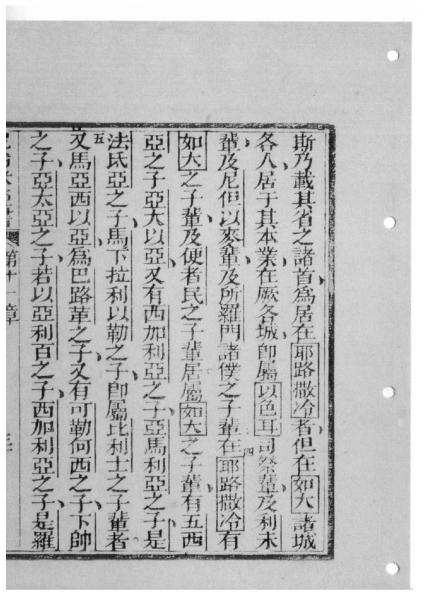 斯乃載其省之諸首為居在耶路撒冷者但在如大諸城
各人居于其本業在厥各城即屬以色耳司祭輩及利未
輩及尼但以麥輩及所羅門諸僕之子輩四在耶路撒冷有
如大之子輩及便者民之子輩居屬如大之子輩有五西
亞之子亞大以亞又有西加利亞之子亞馬利亞之子是
法氏亞之子馬下拉利以勒之子即屬比利士之子輩者
五又馬亞西以亞為巴路革之子又有可勒何西之子下帥
之子亞太亞之子若以亞利百之子西加利亞之子是羅
第十一章